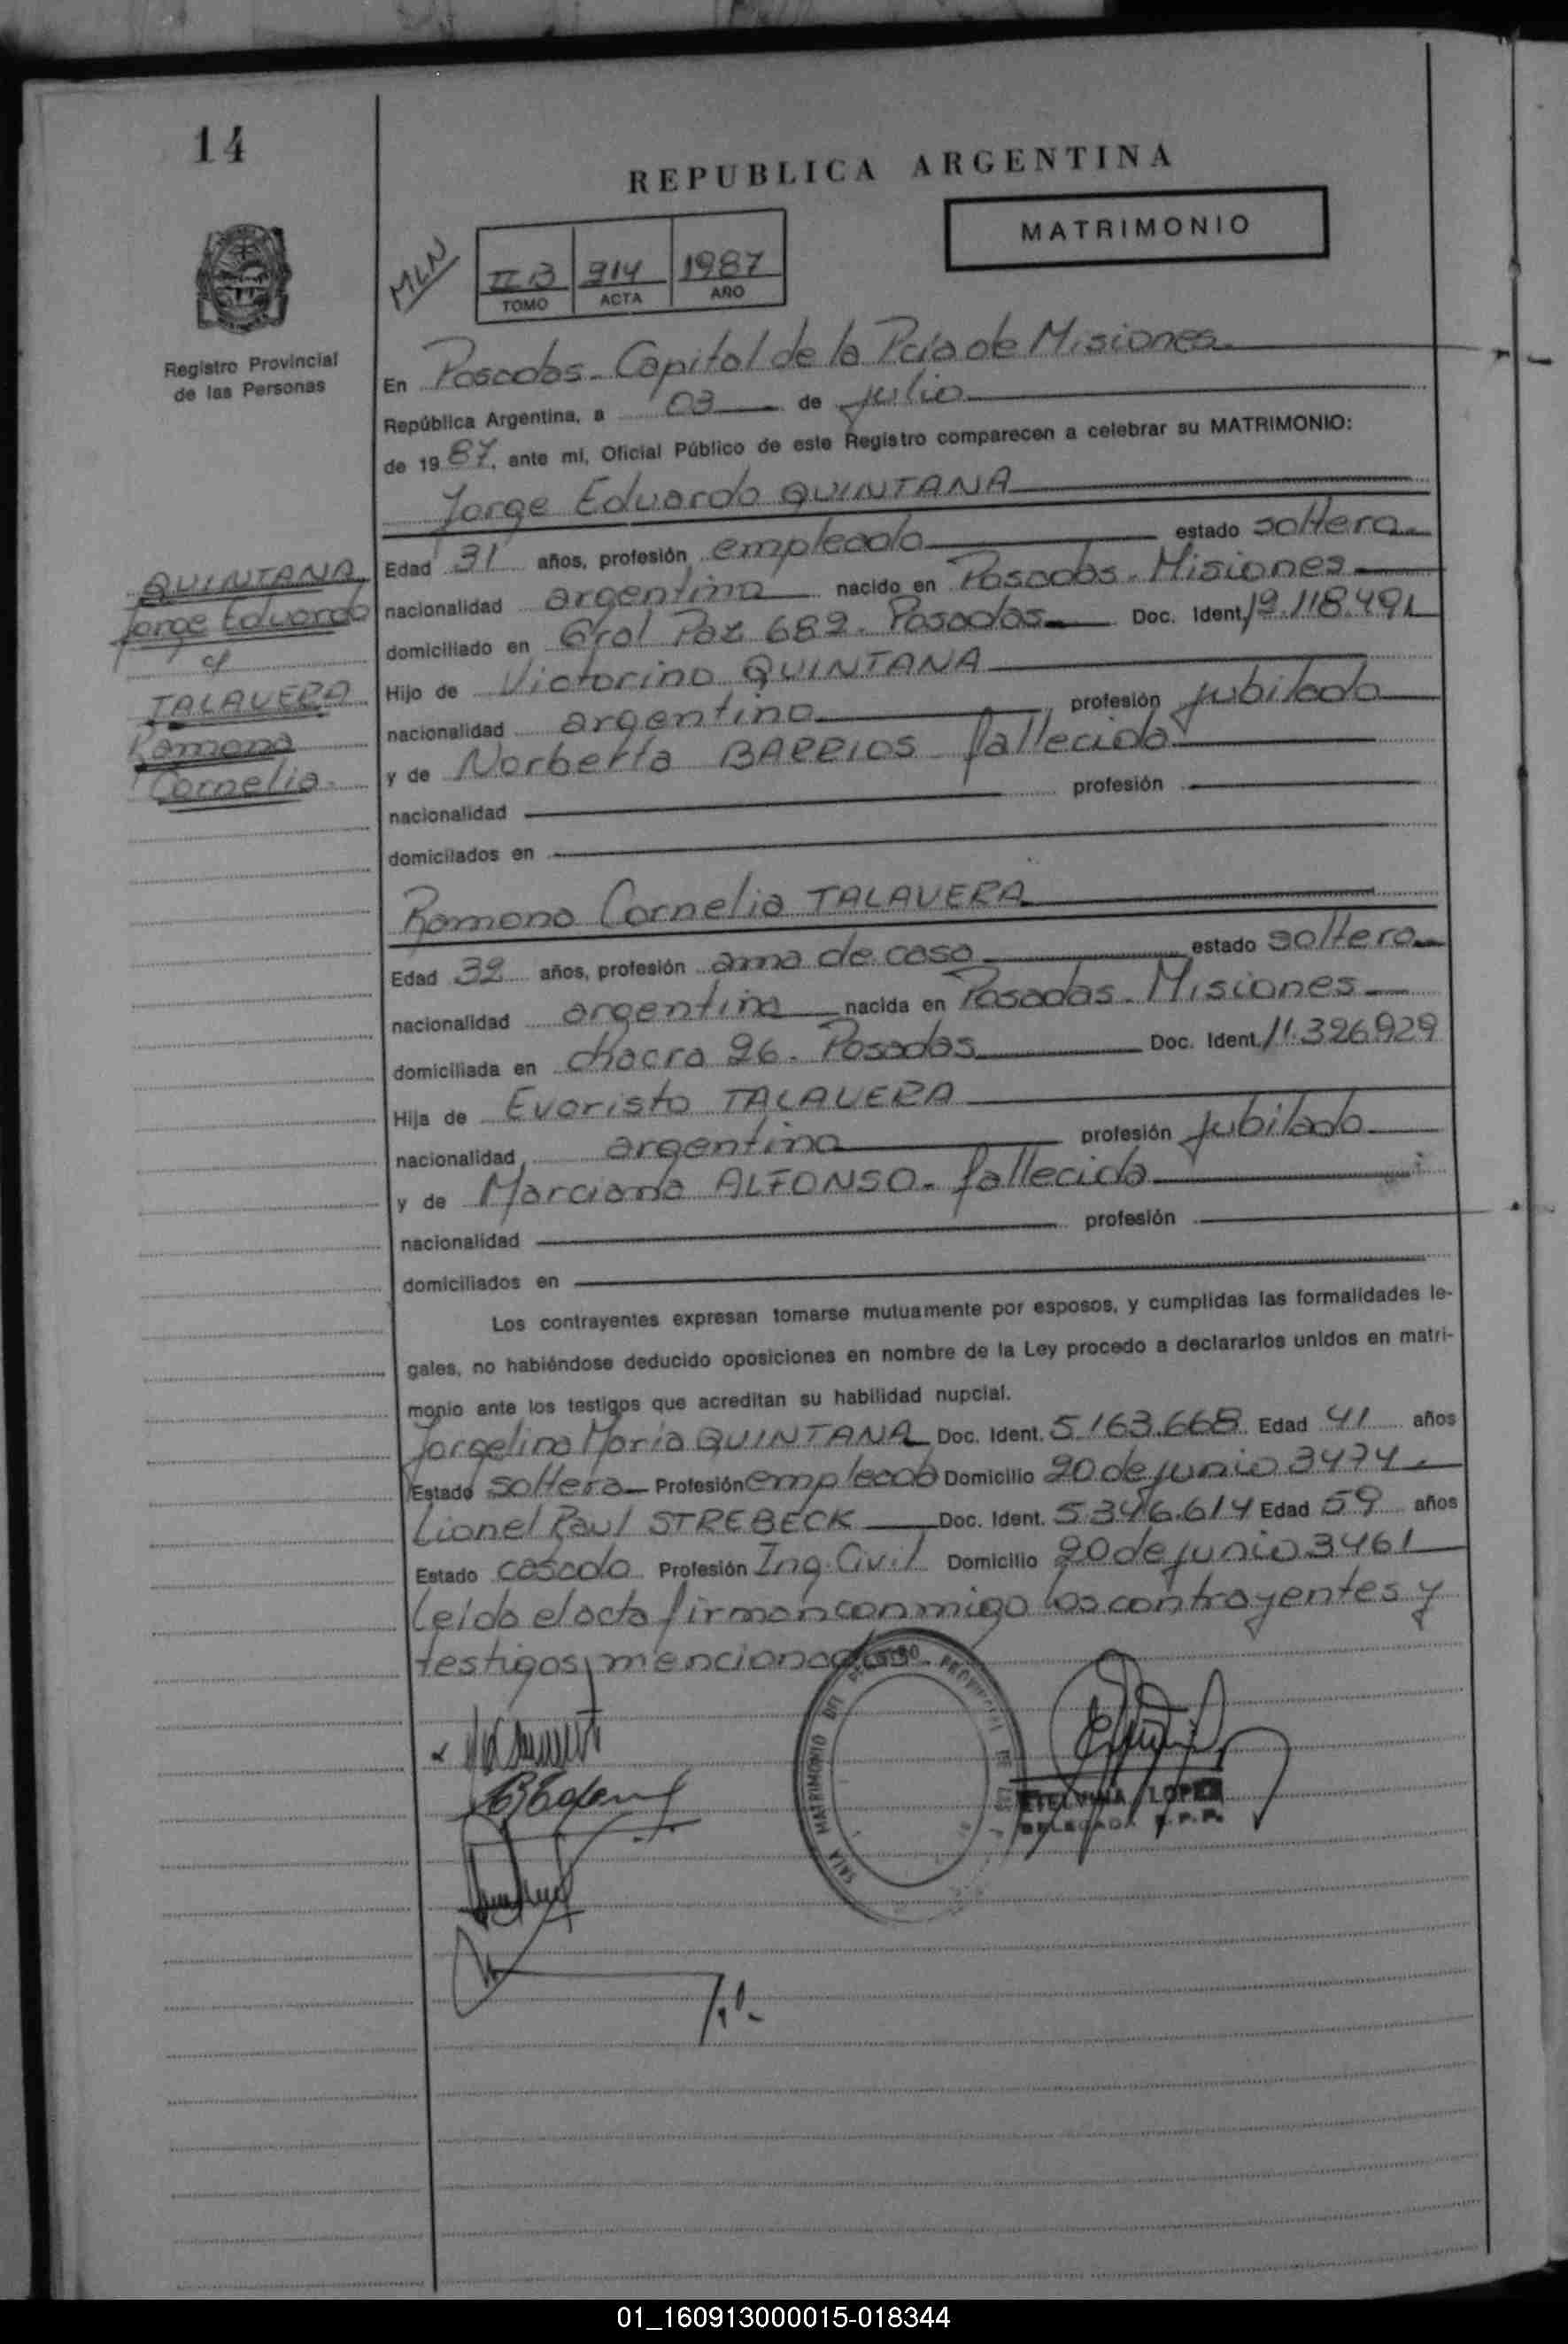 14
REPUBLICA ARGENTINA
MATRIMONIO
MLN
II B 914 1987
TOMO ACTA AÑO
Registro Provincial
de las Personas
En Posadas - Capital de la Pcia de Misiones
República Argentina, a 03 de julio
de 1987, ante mí, Oficial Público de este Registro comparecen a celebrar su MATRIMONIO:
Jorge Eduardo QUINTANA
Edad 31 años, profesión empleado estado soltero
nacionalidad argentina nacido en Posadas - Misiones
domiciliado en Gral Paz 682 - Posadas Doc. Ident. 12.118.491
Hijo de Victorino QUINTANA
nacionalidad argentino profesión jubilado
y de Norberta BARRIOS - fallecida
nacionalidad profesión
domicilados en
QUINTANA
Jorge Eduardo
c/
TALAVERA
Ramona
Cornelia
Ramona Cornelia TALAVERA
Edad 32 años, profesión ama de casa estado soltera
nacionalidad argentina nacida en Posadas - Misiones
domiciliada en chacra 26 - Posadas Doc. Ident. 11.326.929
Hija de Evaristo TALAVERA
nacionalidad argentino profesión jubilado
y de Marciana ALFONSO - fallecida
nacionalidad profesión
domiciliados en
Los contrayentes expresan tomarse mutuamente por esposos, y cumplidas las formalidades le-
gales, no habiéndose deducido oposiciones en nombre de la Ley procedo a declararlos unidos en matri-
monio ante los testigos que acreditan su habilidad nupcial.
Jorgelina María QUINTANA Doc. Ident. 5.163.668 Edad 41 años
Estado soltera Profesión empleada Domicilio 20 de junio 3474
Lionel Raul STREBECK Doc. Ident. 5.346.614 Edad 59 años
Estado casado Profesión Ing. Civil Domicilio 20 de junio 3461
Leída el acta firman conmigo los contrayentes y
testigos mencionados
SALA MATRIMONIO DEL REGISTRO PROVINCIAL DE LAS
ETELVINA LOPEZ
DELEGADA R.P.P.
01_160913000015-018344